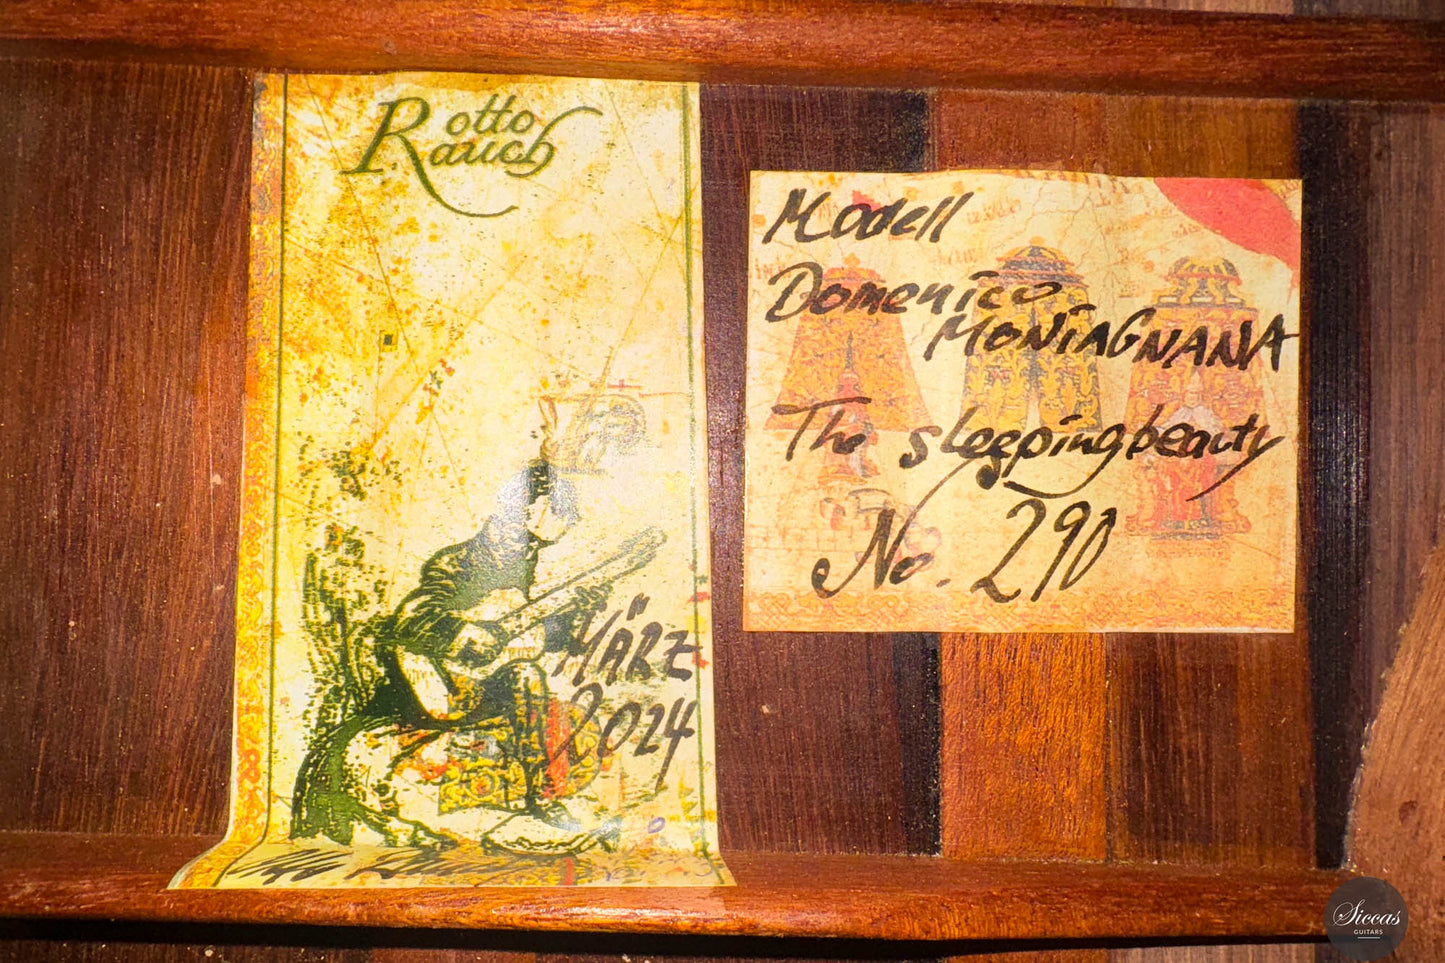 Rotto
Rauch
MÄRZ
2024
Modell
Domenico
MONTAGNANA
The sleepingbeauty
No. 290
Siccas
GUITARS